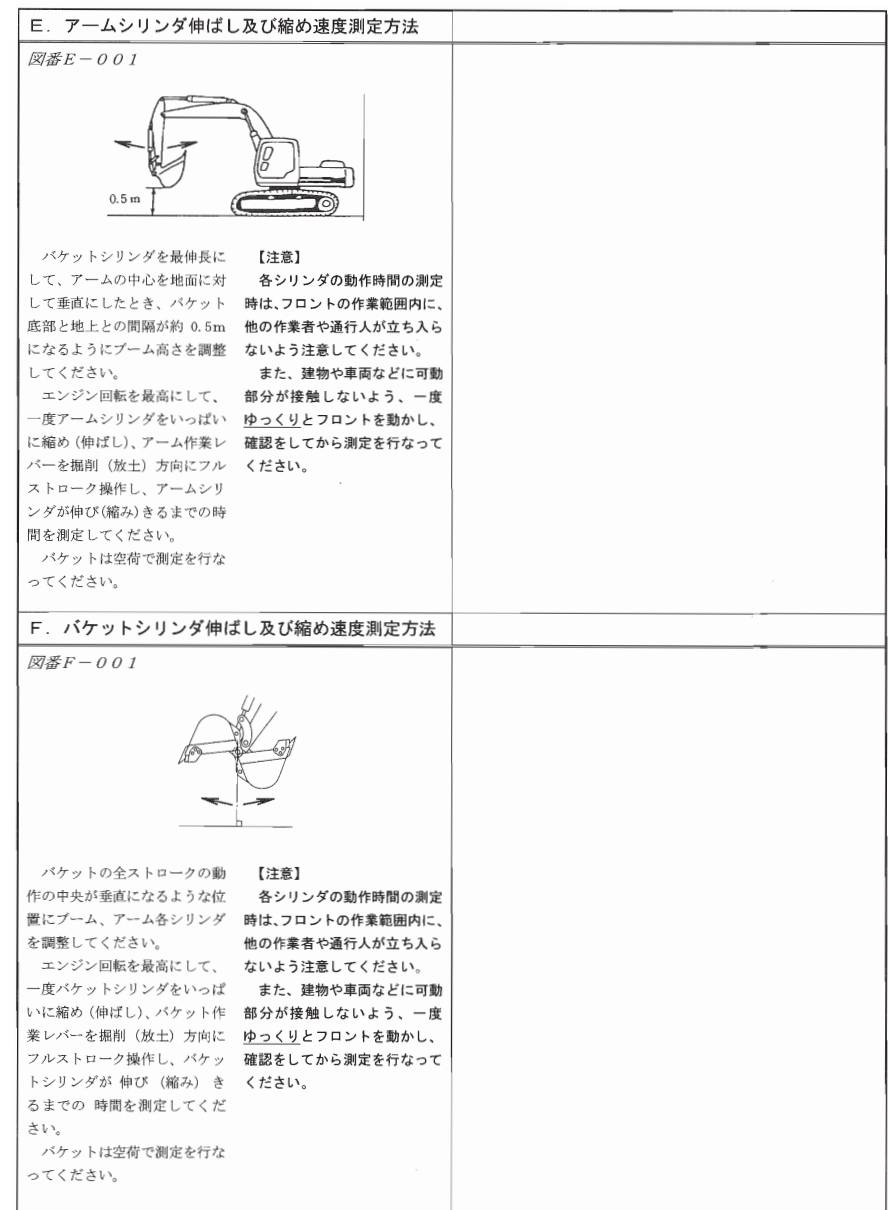 E. アームシリンダ伸ばし及び縮め速度測定方法
図番E-001
0.5 m
　バケットシリンダを最伸長に
して、アームの中心を地面に対
して垂直にしたとき、バケット
底部と地上との間隔が約 0.5m
になるようにブーム高さを調整
してください。
　エンジン回転を最高にして、
一度アームシリンダをいっぱい
に縮め(伸ばし)、アーム作業レ
バーを掘削（放土）方向にフル
ストローク操作し、アームシリ
ンダが伸び(縮み)きるまでの時
間を測定してください。
　バケットは空荷で測定を行な
ってください。
【注意】
　各シリンダの動作時間の測定
時は、フロントの作業範囲内に、
他の作業者や通行人が立ち入ら
ないよう注意してください。
　また、建物や車両などに可動
部分が接触しないよう、一度
ゆっくりとフロントを動かし、
確認をしてから測定を行なって
ください。
F. バケットシリンダ伸ばし及び縮め速度測定方法
図番F-001
　バケットの全ストロークの動
作の中央が垂直になるような位
置にブーム、アーム各シリンダ
を調整してください。
　エンジン回転を最高にして、
一度バケットシリンダをいっぱ
いに縮め(伸ばし)、バケット作
業レバーを掘削（放土）方向に
フルストローク操作し、バケッ
トシリンダが 伸び （縮み） き
るまでの 時間を測定してくだ
さい。
　バケットは空荷で測定を行な
ってください。
【注意】
　各シリンダの動作時間の測定
時は、フロントの作業範囲内に、
他の作業者や通行人が立ち入ら
ないよう注意してください。
　また、建物や車両などに可動
部分が接触しないよう、一度
ゆっくりとフロントを動かし、
確認をしてから測定を行なって
ください。